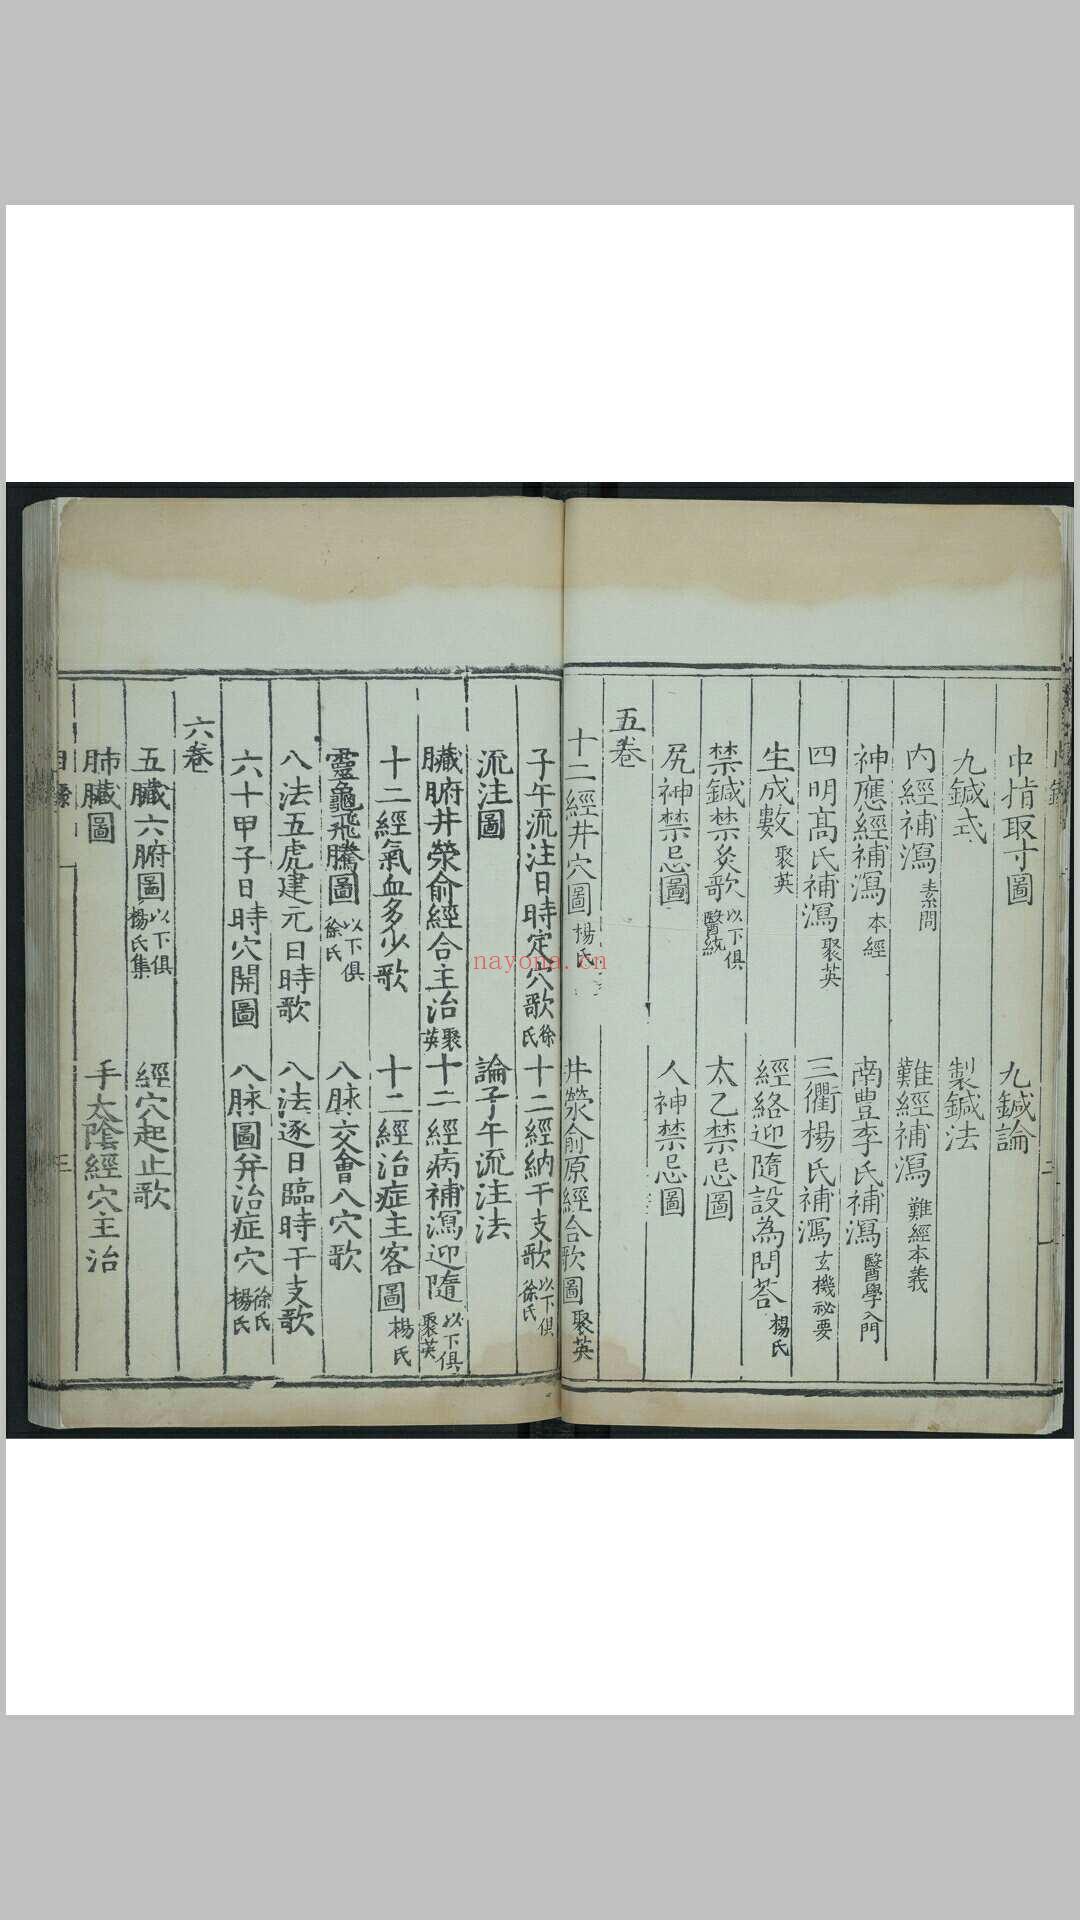 中指取寸圖　九鍼論
九鍼式　製鍼法
內經補瀉 素問　難經補瀉 難經本義
神應經補瀉 本經　南豊李氏補瀉 醫學入門
四明高氏補瀉 聚英　三衢楊氏補瀉 玄機祕要
生成數 聚英　經絡迎隨設為問荅 楊氏
禁鍼禁灸歌 以下俱醫統　太乙禁忌圖
尻神禁忌圖　人神禁忌圖
五卷
十二經井穴圖 楊氏　井滎俞原經合歌圖 聚英
子午流注日時定穴歌 徐氏　十二經納干支歌 以下俱徐氏
流注圖　論子午流注法
臟腑井滎俞經合主治 聚英　十二經病補瀉迎隨 以下俱聚英
十二經氣血多少歌　十二經治症主客圖 楊氏
靈龜飛騰圖 以下俱徐氏　八脉交會八穴歌
八法五虎建元日時歌　八法逐日臨時干支歌
六十甲子日時穴開圖　八脉圖并治症穴 徐氏楊氏
六卷
五臟六腑圖 以下俱楊氏集　經穴起止歌
肺臟圖　手太陰經穴主治
目錄
三
nayona.cn